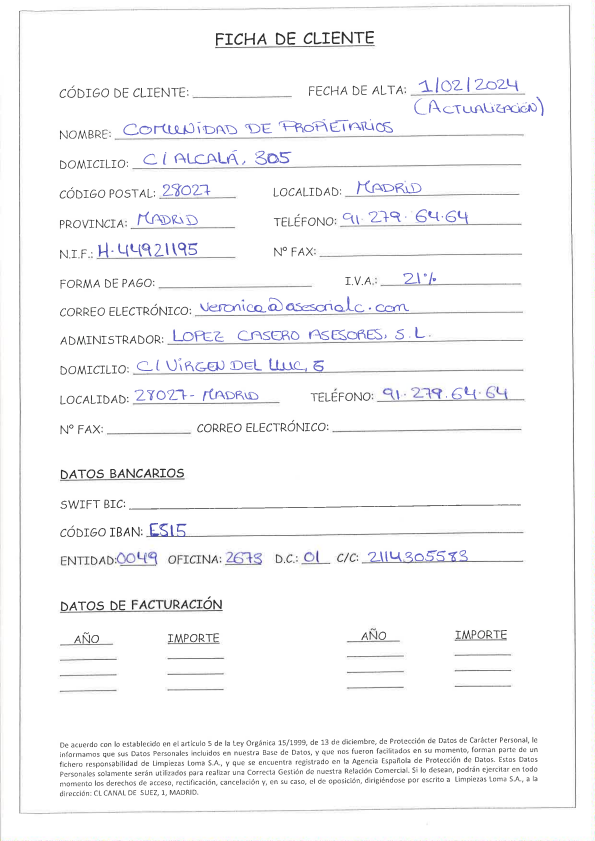 FICHA DE CLIENTE
CÓDIGO DE CLIENTE: FECHA DE ALTA: 1/02/2024
(ACTUALIZACIÓN)
NOMBRE: COMUNIDAD DE PROPIETARIOS
DOMICILIO: C/ ALCALÁ, 305
CÓDIGO POSTAL: 28027 LOCALIDAD: MADRID
PROVINCIA: MADRID TELÉFONO: 91.279.64.64
N.I.F.: H-44921195 Nº FAX:
FORMA DE PAGO: I.V.A.: 21%
CORREO ELECTRÓNICO: veronica@asesorialc.com
ADMINISTRADOR: LOPEZ CASERO ASESORES, S.L.
DOMICILIO: C/ VIRGEN DEL LLUC, 6
LOCALIDAD: 28027 - MADRID TELÉFONO: 91.279.64.64
Nº FAX: CORREO ELECTRÓNICO:
DATOS BANCARIOS
SWIFT BIC:
CÓDIGO IBAN: ES15
ENTIDAD: 0049 OFICINA: 2673 D.C.: 01 C/C: 2114305583
DATOS DE FACTURACIÓN
AÑO IMPORTE AÑO IMPORTE
De acuerdo con lo establecido en el artículo 5 de la Ley Orgánica 15/1999, de 13 de diciembre, de Protección de Datos de Carácter Personal, le
informamos que sus Datos Personales incluidos en nuestra Base de Datos, y que nos fueron facilitados en su momento, forman parte de un
fichero responsabilidad de Limpiezas Loma S.A., y que se encuentra registrado en la Agencia Española de Protección de Datos. Estos Datos
Personales solamente serán utilizados para realizar una Correcta Gestión de nuestra Relación Comercial. Si lo desean, podrán ejercitar en todo
momento los derechos de acceso, rectificación, cancelación y, en su caso, el de oposición, dirigiéndose por escrito a Limpiezas Loma S.A., a la
dirección: CL CANAL DE SUEZ, 1, MADRID.